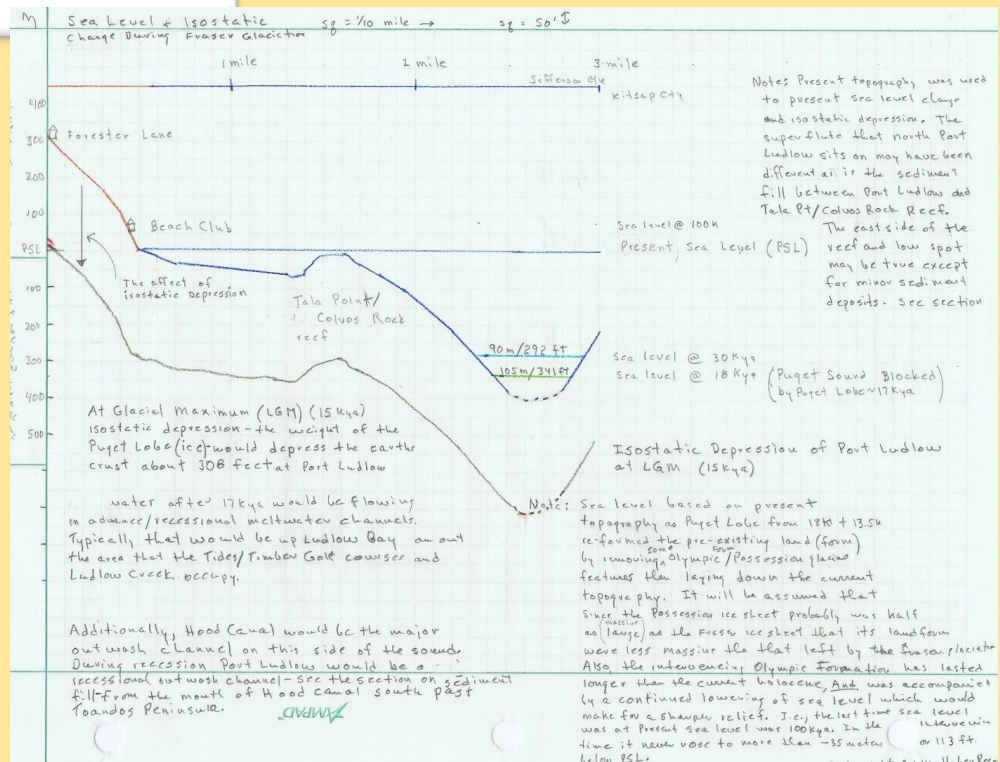 Sea Level & Isostatic
Change During Fraser Glaciation
sq = 1/10 mile →
sq = 50' ↕
1 mile
2 mile
3 mile
Jefferson Cty
Kitsap Cty
400
300
200
100
PSL
100
200
300
400
500
Forester Lane
Beach Club
The affect of
isostatic Depression
Tala Point/
Colvos Rock
reef
90 m/292 ft
105m/341ft
Note: Present topography was used
to present sea level change
and isostatic depression. The
super flute that north Port
Ludlow sits on may have been
different as is the sediment
fill between Port Ludlow and
Tala Pt/Colvos Rock Reef.
The east side of the
reef and low spot
may be true except
for minor sediment
deposits. See section
Sea level @ 100K
Present, Sea Level (PSL)
Sea level @ 30Kya
Sea level @ 18Kya (Puget Sound Blocked
by Puget Lobe ~17Kya)
Isostatic Depression of Port Ludlow
at LGM (15Kya)
At Glacial Maximum (LGM) (15Kya)
isostatic depression - the weight of the
Puget Lobe (ice) would depress the earths
crust about 308 feet at Port Ludlow
water after 17Kya would be flowing
in advance/recessional meltwater channels.
Typically that would be up Ludlow Bay an out
the area that the Tides/Timber Golf courses and
Ludlow Creek occupy.
Additionally, Hood Canal would be the major
outwash channel on this side of the sound.
During recession Port Ludlow would be a
recessional outwash channel - see the section on sediment
fill from the mouth of Hood Canal south past
Toandos Peninsula.
AMPAD
Note: Sea level based on present
topography as Puget Lobe from 18K + 13.5K
re-formed the pre-existing land (form)
by removing some Olympic/Possession glacier
features then laying down the current
topography. It will be assumed that
since the Possession ice sheet probably was half
as (massive) large as the Fraser ice sheet that its landform
were less massive the that left by the fraser glaciation
Also the intervening Olympic Formation has lasted
longer than the current holocene, And was accompanied
by a continued lowering of sea level which would
make for a sharper relief. I.e., the last time sea level
was at Present sea level was 100Kya. In the
time it never rose to more than -35 meters or 113 ft.
below PSL.